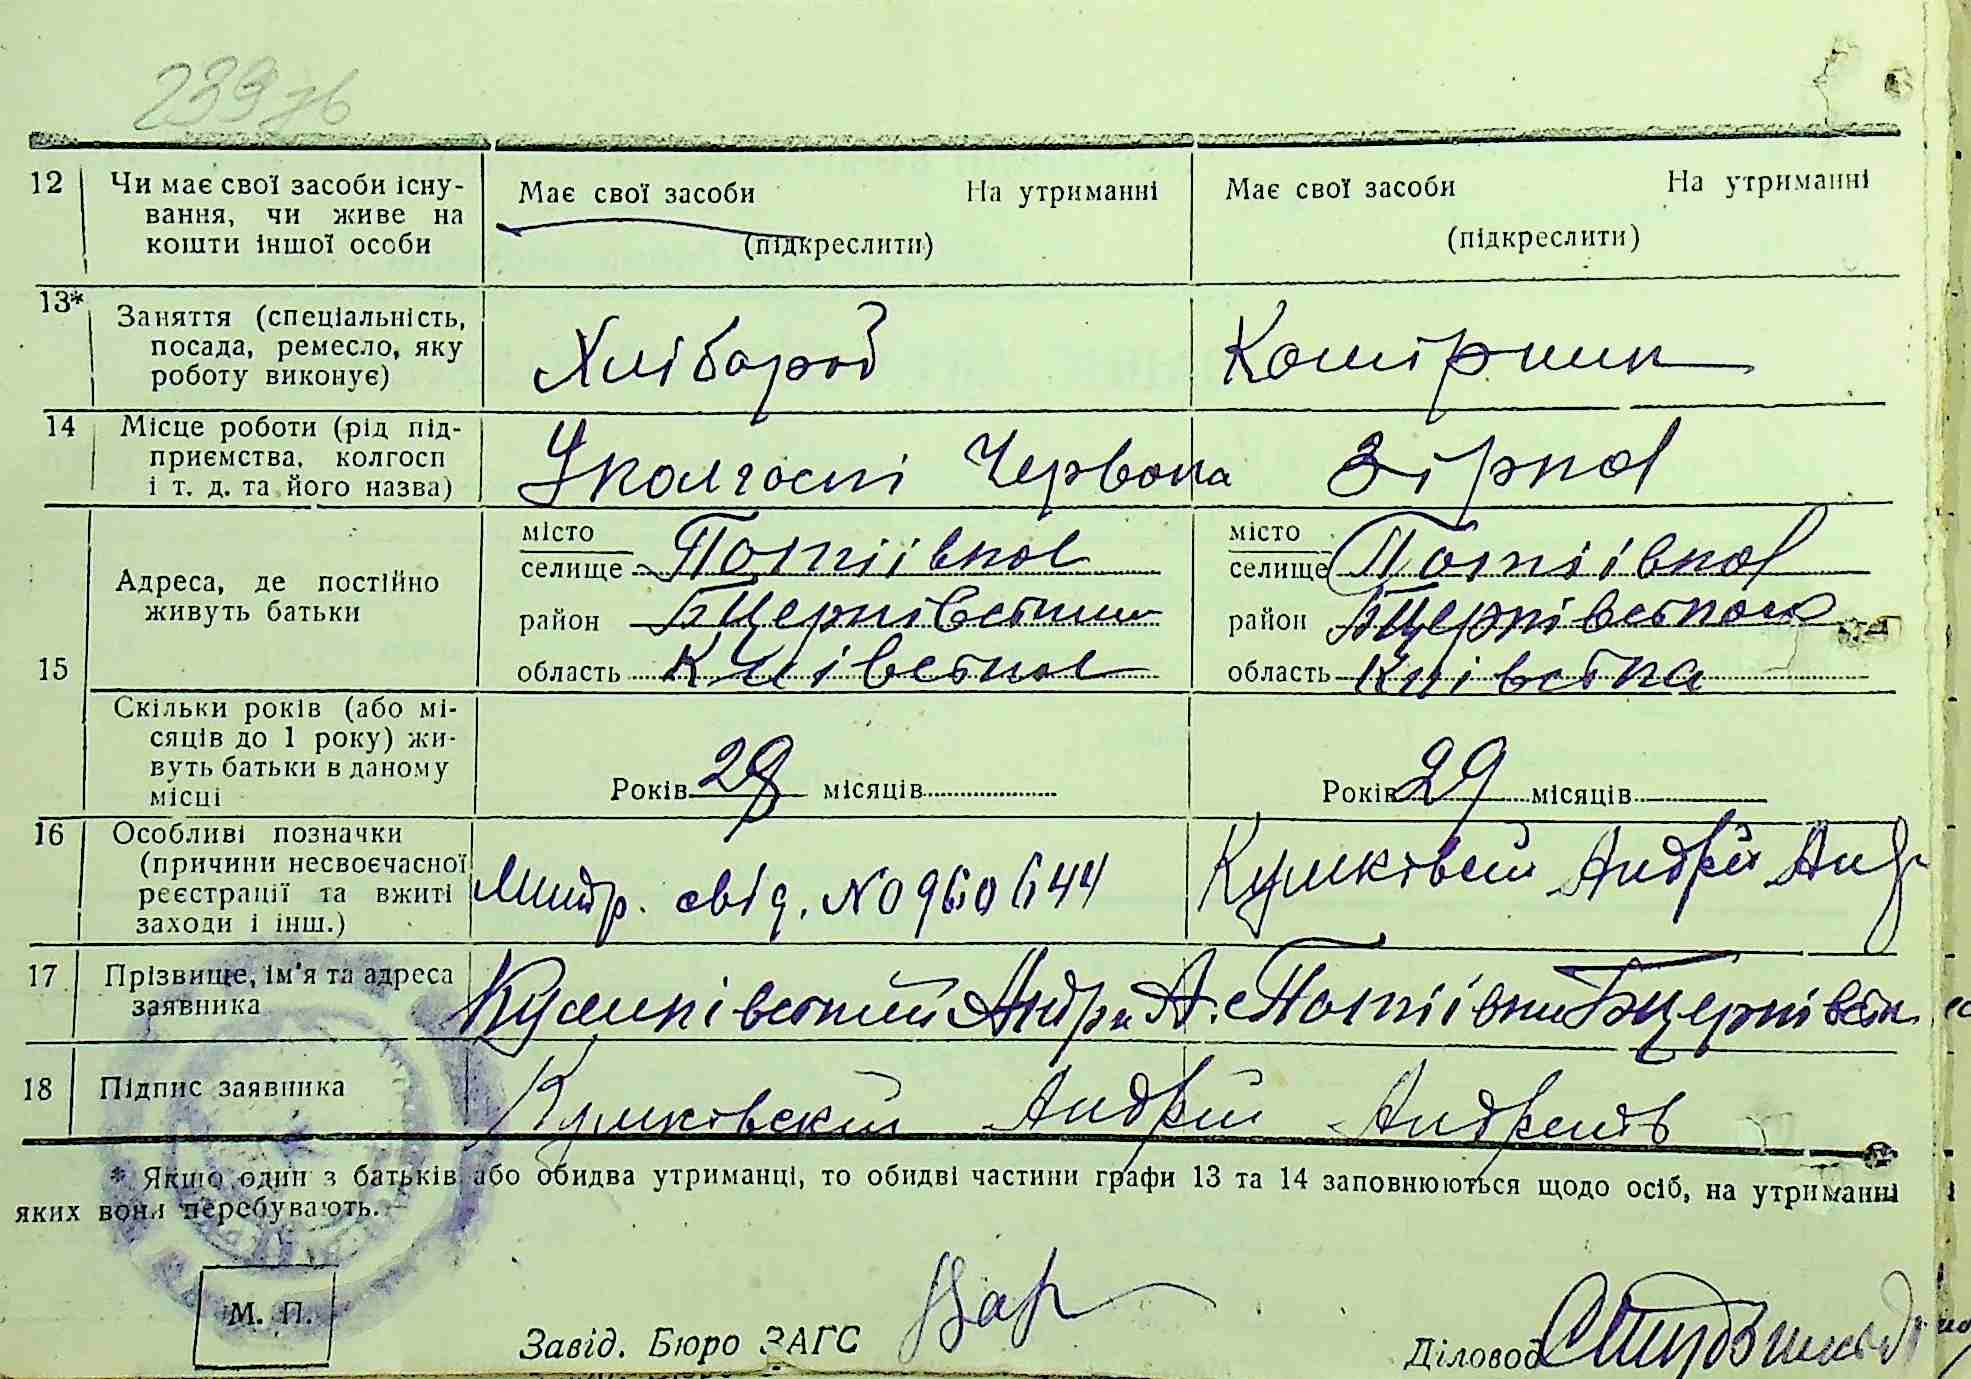 239 зв
12 Чи має свої засоби існу- Має свої засоби На утриманні Має свої засоби На утриманні
вання, чи живе на
кошти іншої особи (підкреслити) (підкреслити)
13* Заняття (спеціальність,
посада, ремесло, яку Хлібороб Комірник
роботу виконує)
14 Місце роботи (рід під-
приємства, колгосп У колгоспі Червона Зірка
і т. д. та його назва)
місто місто
селище Потіївка селище Потіївка
Адреса, де постійно
живуть батьки район Бцерківський район Бцерківською
15 область Київська область Київська
Скільки років (або мі-
сяців до 1 року) жи-
вуть батьки в даному Років 28 місяців Років 29 місяців
місці
16 Особливі позначки
(причини несвоєчасної
реєстрації та вжиті свід. №0960644 Андрій Анд
заходи і інш.)
17 Прізвище, ім'я та адреса
заявника Андрі А. с Потіївки Бцерківськ
18 Підпис заявника Андрій
* Якщо один з батьків або обидва утриманці, то обидві частини графи 13 та 14 заповнюються щодо осіб, на утриманні
яких вони перебувають.
М. П.
Завід. Бюро ЗАГС
Діловод